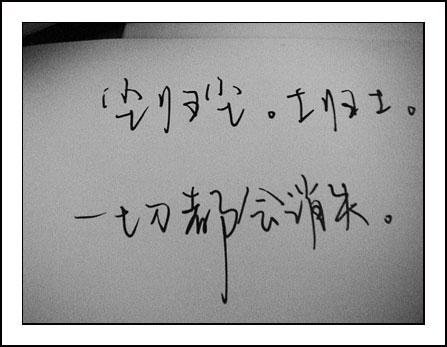 尘归尘。土归土。
一切都会消失。